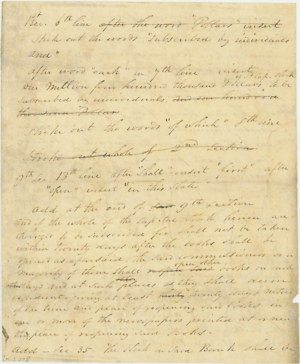 Sec. 6th line after the word "Dollars" insert
strike out the words "subscribed by individuals
and"
after word "each" in 7th line insert
one Million four hundred thousand Dollars, to be
subscribed by individuals,
thousand Dollars
strike out the words "of which" 8th line
Strike out whole of 2nd section
9th sec. 13th line after "shall" insert "first" after
"open" insert "in this State"
Add at the end of 9th section
And if the whole of the Capital Stock herein
for shall not be taken
within twenty days after the books shall be
opened as aforesaid the said commissioners or a
majority of them shall open other books on such
days and at such places as they shall deem
expedient giving at least twenty days notice
of the time and place of opening said books in
one or more of the newspapers printed at or near
the place of opening said books.
Add Sec 35 The stock in said Bank shall be